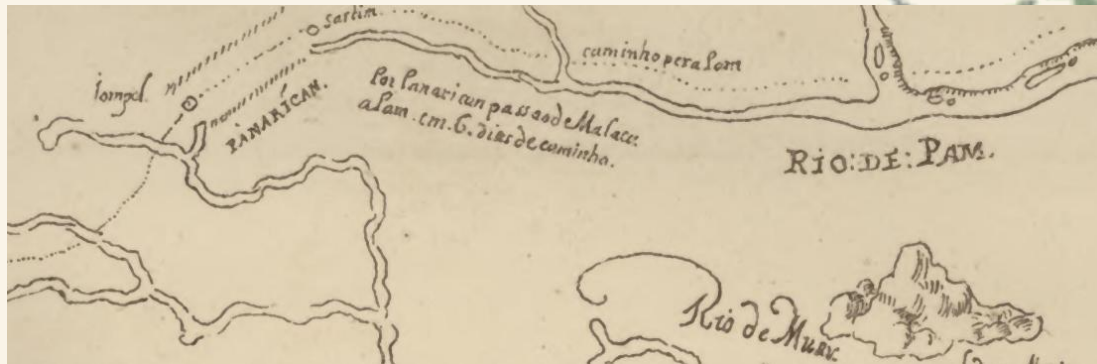 sartim
caminho pera Pam
iompol
PANARÍCAN.
Por Panarican passaõ de Malaca
a Pam. em. 6. dias de caminho.
RIO: DE: PAM.
Rio de Muar.